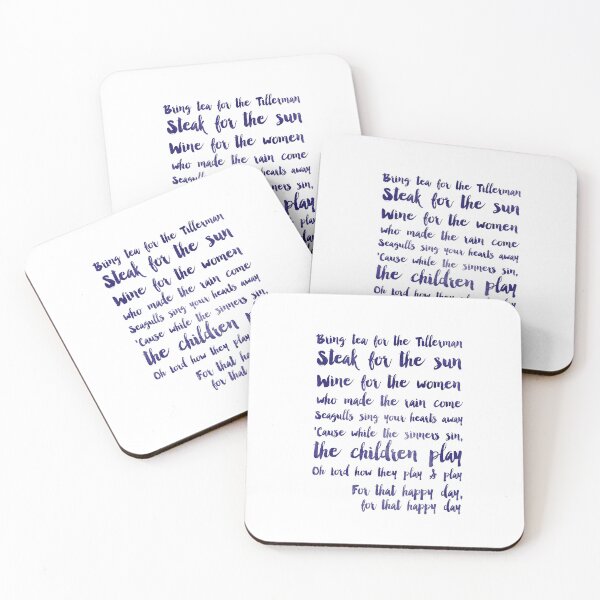 Bring tea for the Tillerman
Steak for the sun
Wine for the women
who made the rain come
Seagulls hearts away
sinners sin,
play
play
Bring tea for the Tillerman
Steak for the sun
Wine for the women
who made the rain come
Seagulls sing your hearts away
'Cause while the sinners sin,
the children play
Oh lord how they play
Bring tea for the Tillerman
Steak for the sun
Wine for the women
who made the rain come
Seagulls sing your hearts away
'Cause while the sinners sin,
the children
Oh lord how they play
For that
for that
Bring tea for the Tillerman
Steak for the sun
Wine for the women
who made the rain come
Seagulls sing your hearts away
'Cause while the sinners sin,
the children play
Oh lord how they play & play
For that happy day,
for that happy day